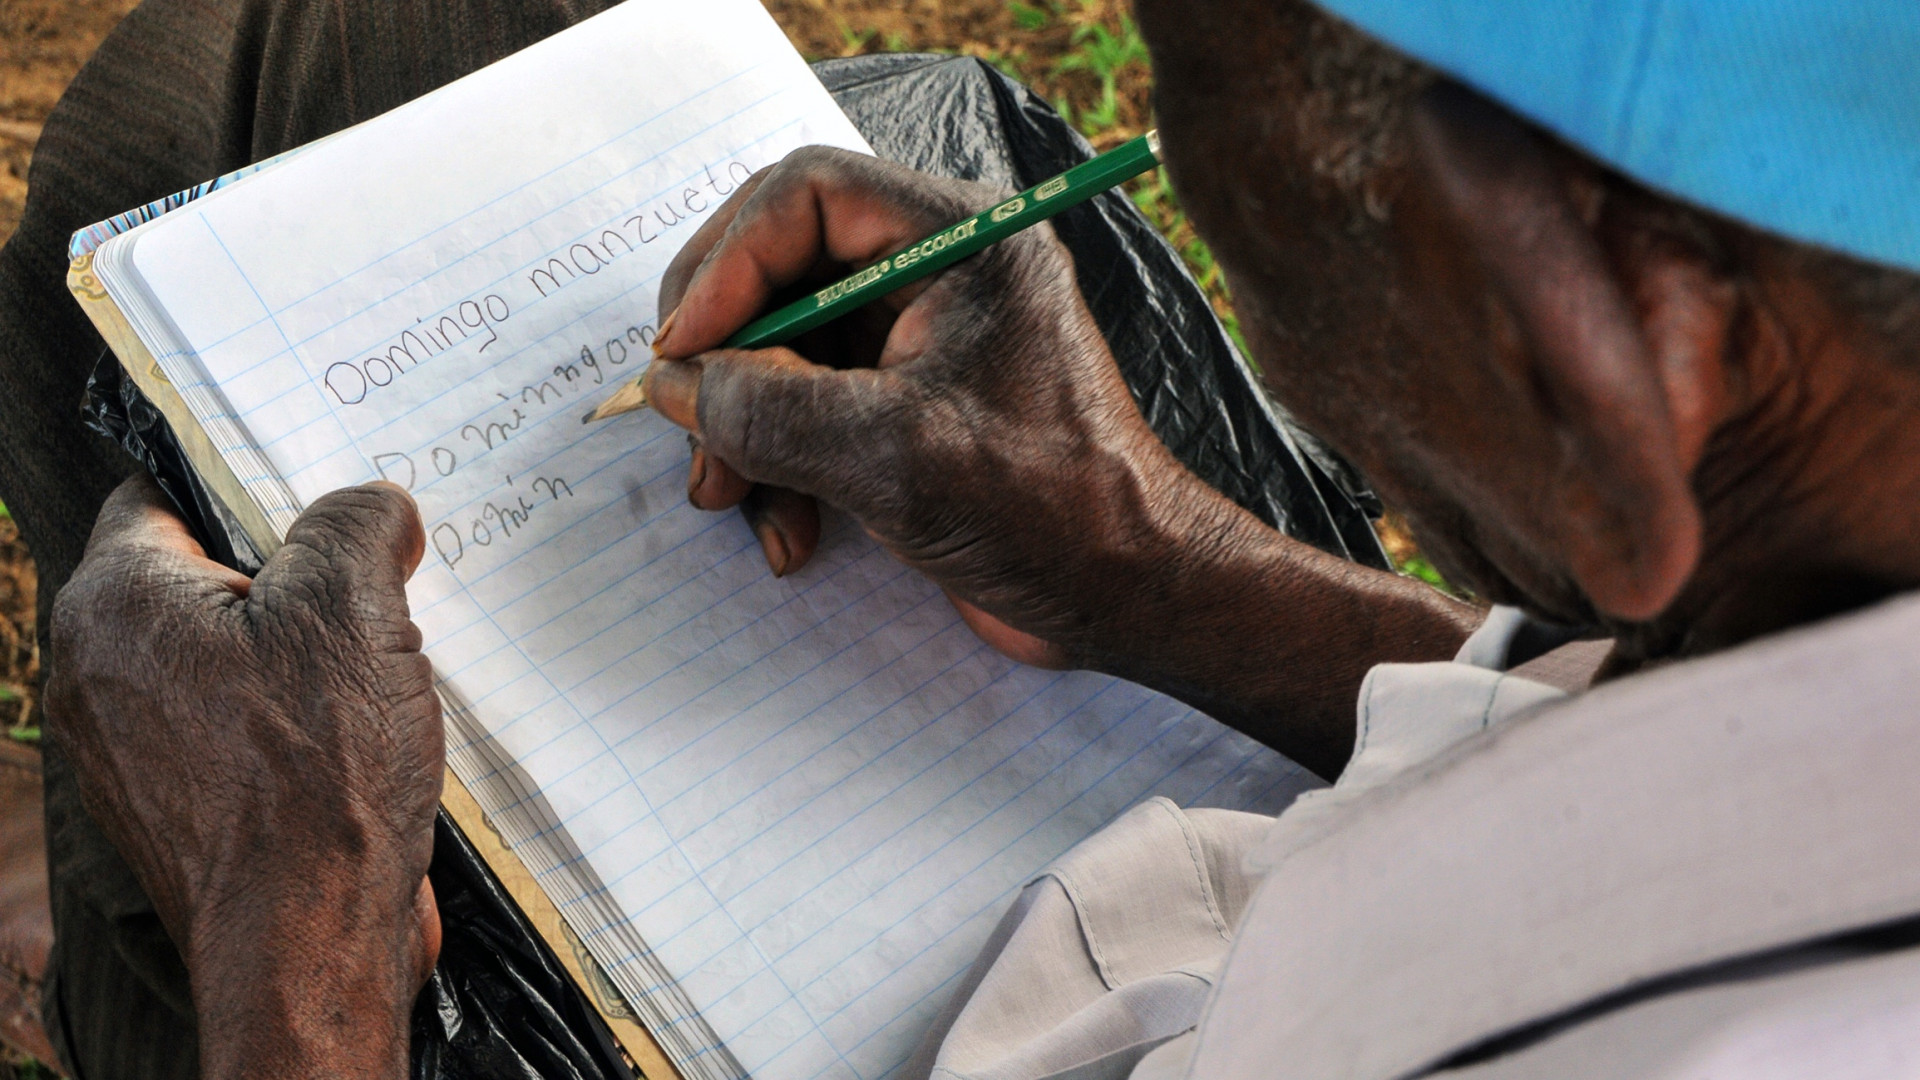 Domingo manzueta
Domingom
Domin
RUGER® escolar N2 HB